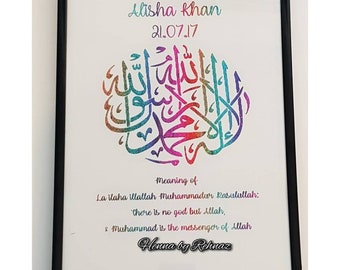 Alisha Khan
21.07.17
لا إله إلا الله محمد رسول الله
Meaning of
La ilaha illallah Muhammadur Rasulullah:
there is no god but Allah,
& Muhammad is the messenger of Allah
Henna by Rehnaz